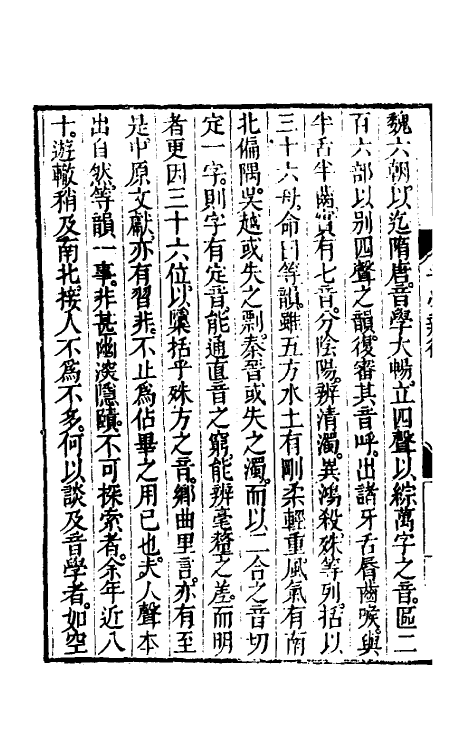 魏六朝以迄隋唐。音學大暢。立四聲以綜萬字之音。區二
百六部以别四聲之韻。復審其音呼。出諸牙舌脣齒喉。與
半舌半齒。實有七音。分陰陽。辨清濁。異鴻殺。殊等列。括以
三十六母。命曰等韻。雖五方水土有剛柔輕重。風氣有南
北偏隅。吳越或失之剽。秦晉或失之濁。而以二合之音切
定一字。則字有定音。能通直音之窮。能辨毫釐之差。而明
者更因三十六位。以檃括乎殊方之音。鄉曲里言。亦有至
是。中原文獻。亦有習非。不止爲佔畢之用已也。夫人聲本
出自然。等韻一事。非甚幽深隱賾。不可探索者。余年近八
十。遊轍稍及南北。接人不爲不多。何以談及音學者。如空